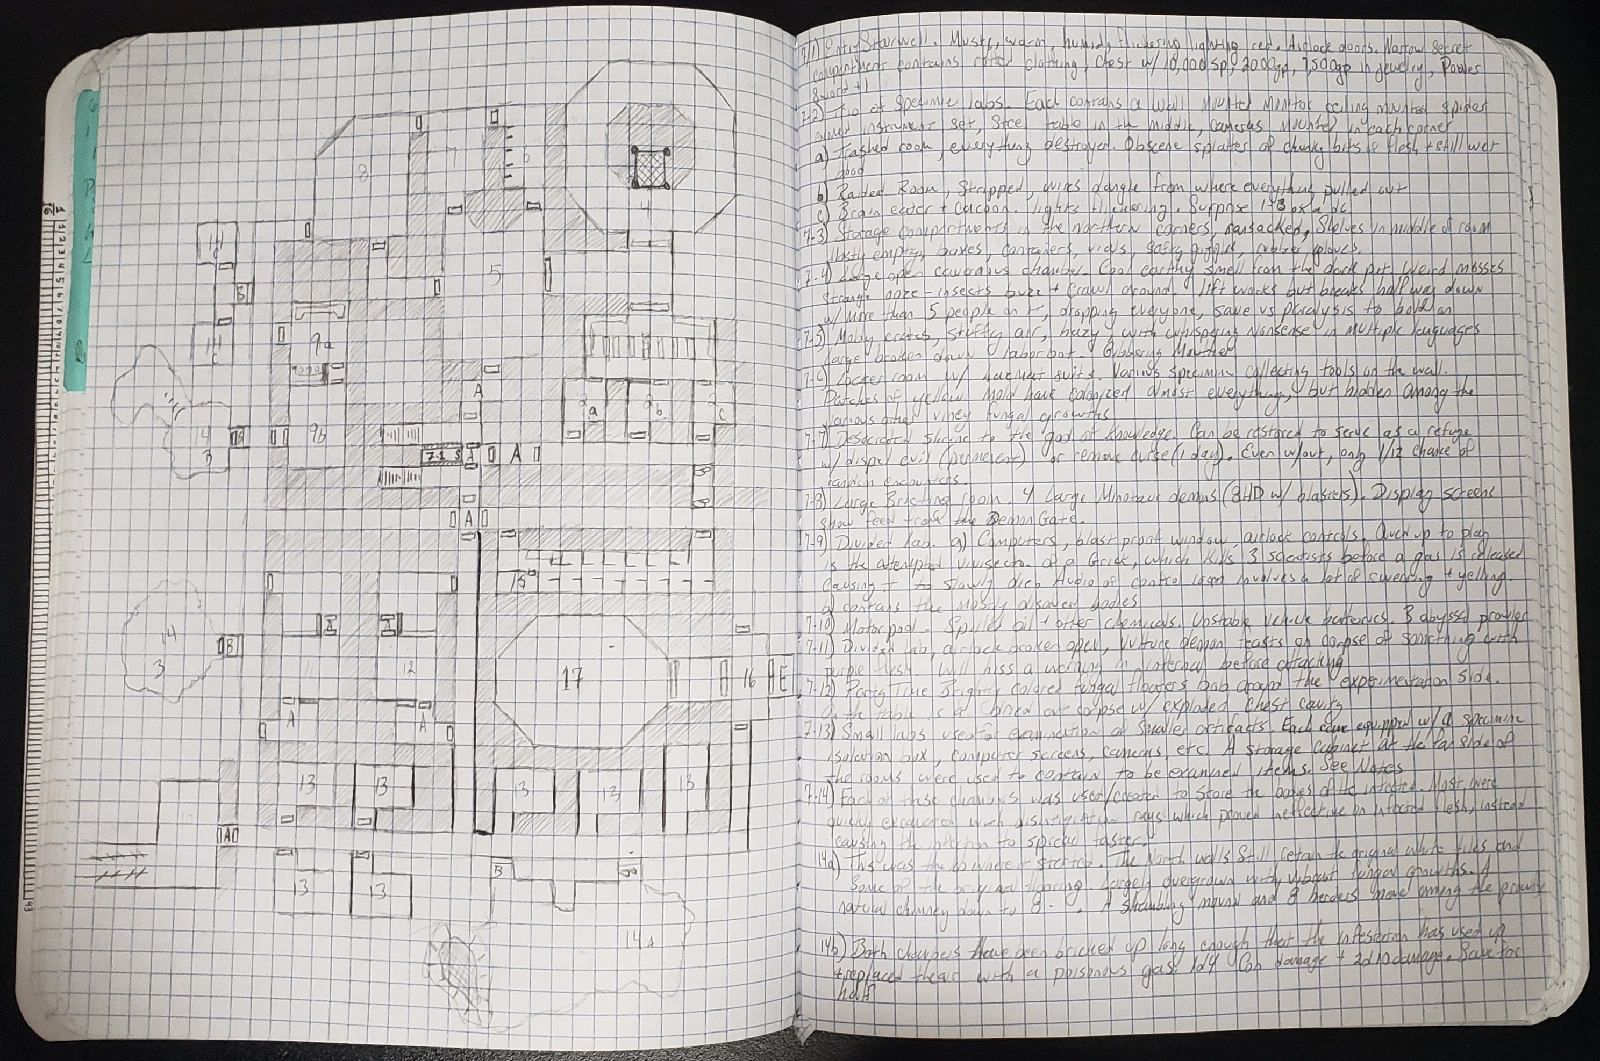 7-1) Entry Stairwell. Musty, warm, humid, flickering lighting red. Airlock doors. Narrow secret
compartment contains rotted clothing, chest w/ 10,000 sp, 2000gp, 1,500gp in jewelry,
Sword +1
7-2) Trio of Specimine labs. Each contains a wall mounted monitor ceiling mounted spider
armed instrument set, Steel table in the middle, cameras mounted in each corner
a) Trashed room, everything destroyed. Obscene splatter of chunky bits of flesh + still wet
blood
b) Raided Room, Stripped, wires dangle from where everything pulled out
c) Brain eater + Cocoon. lights flickering. Surprise 1-3 on a d6
7-3) Storage compartments in the northern corners, ransacked, Shelves in middle of room
Mostly empty, boxes, containers, vials, safty goggles, rubber gloves.
7-4) Large open cavernous chamber. Cool earthy smell from the dark pit. Weird mosses
strange ooze-insects buzz + crawl around. lift works but breaks half way down
w/ more than 5 people on it, dropping everyone, save vs paralysis to hold on
7-5) Moldy crates, stuffy air, hazy with whispering nonsense in multiple languages
Large broken down laborbot. Gibbering Mouther
7-6) Locker room w/ hazmat suits. Various specimine collecting tools on the wall.
Patches of yellow mold have colonized almost everything, but hidden among the
various other viney fungal growths
7-7) Desecrated shrine to the god of Knowledge. Can be restored to serve as a refuge
w/ dispel evil (permenent) or remove curse (1 day). Even w/out, only 1/12 chance of
random encounters.
7-8) Large Briefing room. 4 Large Minotaur demons (8HD w/ blasters). Display screens
show feed from the Demon Gate.
7-9) Divided lab. a) Computers, blast proof window, airlock controls. Qued up to play
is the attempted vivisection of a Grick, which kills 3 scientists before a gas is released
causing it to slowly die. Audio of control room involves a lot of swearing + yelling.
b) contains the mostly disolved bodies
7-10) Motorpool. Spilled oil + other chemicals. Unstable vehicle batteries. 3 abyssal prowler
7-11) Divided lab, airlock broken open, Vulture demon feasts on corpse of something with
purple flesh. Will hiss a warning in infernal before attacking
7-12) Party Time Brightly colored fungal floaters bob around the experimentation side.
On the table is a corpse w/ exploded chest cavity
7-13) Small labs used for examination of smaller artifacts. Each equipped w/ a specimine
isolation box, computer screens, cameras, etc. A storage cabinet at the far side of
the rooms were used to contain to be examined items. See Notes
7-14) Each of these chambers was used/created to store the bodies of the infected. Most were
quickly excavated with disintigration rays which proved ineffective on infected flesh, instead
causing the infection to spread faster.
14a) This was the where it started. The North walls still retain the original white tiles and
some of the original flooring. Largely overgrown with vibrant fungal growths. A
natural chimney down to 8- . A shambling mound and 8 herders move among the growth
14b) Both chambers have been bricked up long enough that the infestation has used up
+ replaced the air with a poisonous gas. 1d4 Con damage + 2d10 damage. Save for
half
8
7
6
4
5
14
B
14
C
9a
A
2a
2b
2
C
14
B
B
9b
7-1 S
A
A
S
S
A
15
14
3
B
11
12
17
16
E
A
A
13
13
13
13
13
A
13
13
B
B
14A